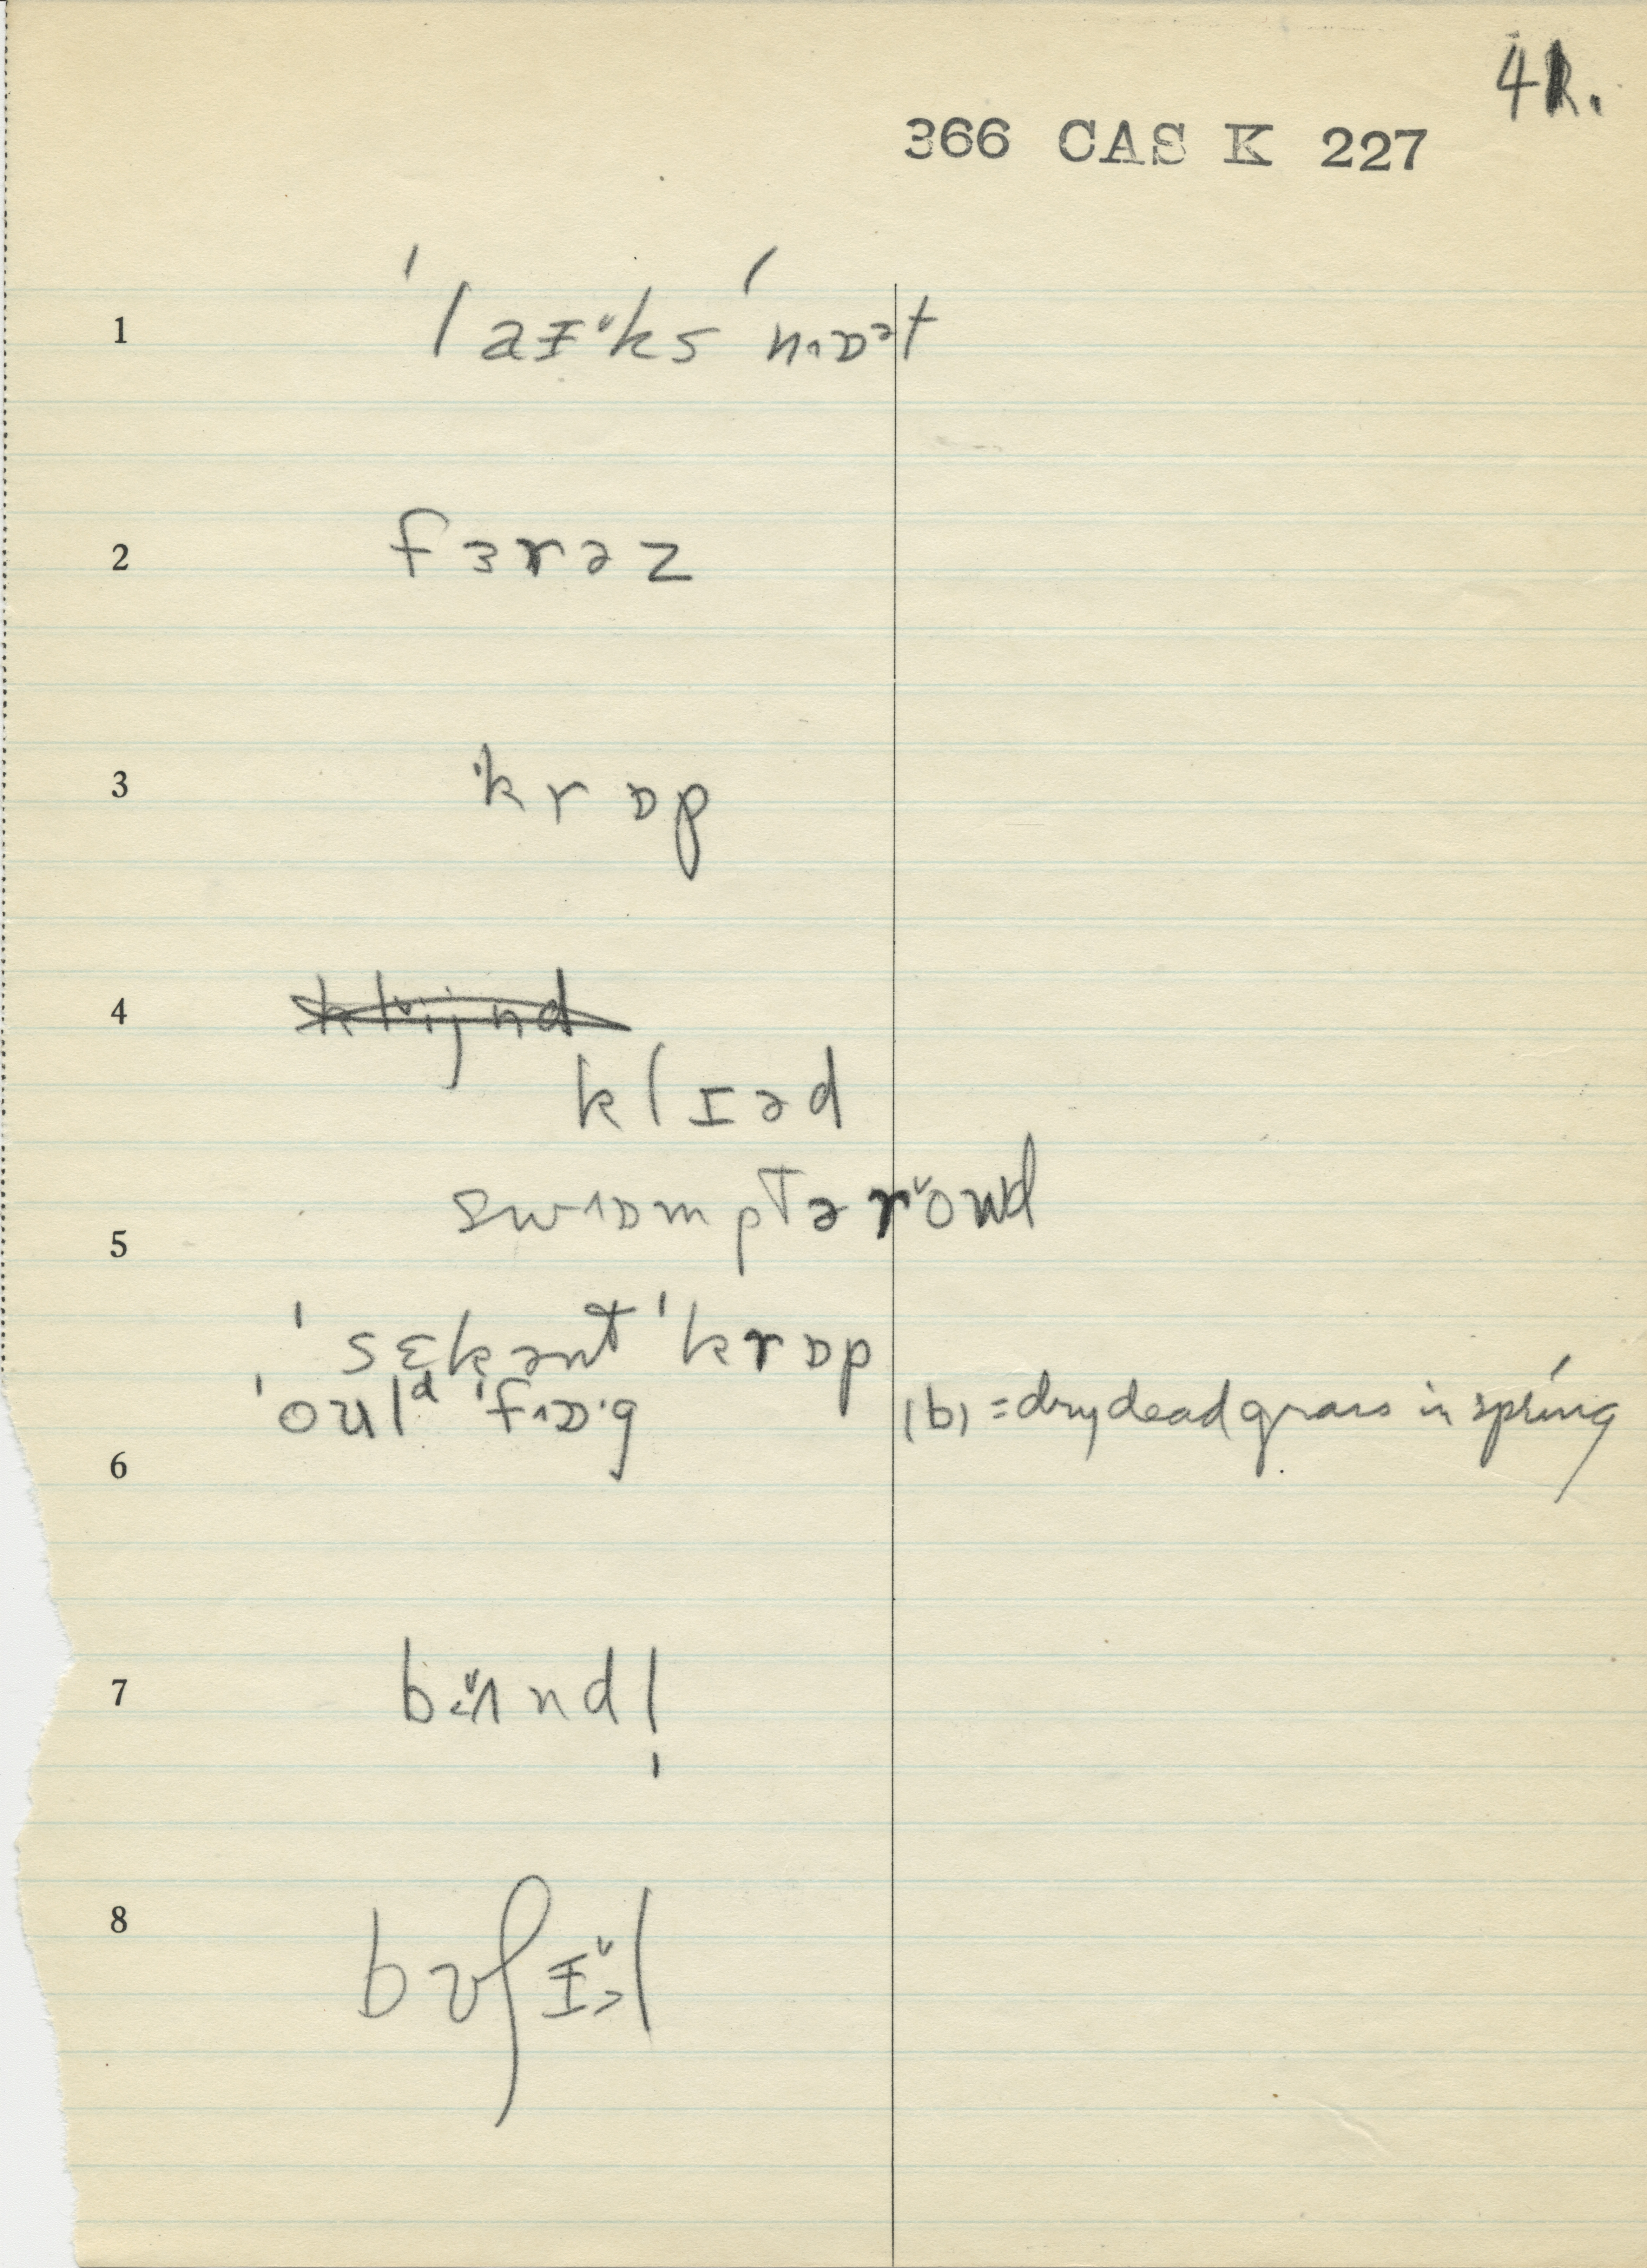 41.
366 CAS K 227
1 ˈlaɪ˅ks ˈnɒət
2 fɜrəz
3 krɒp
4 klɪəd
swɒmptər˅oʊd
5
ˈsɛkənt ˈkrɒp
ˈoʊlᵈ ˈfɒ·g (b) = dry dead grass in spring
6
7 bʌndl̩
8 bʊʃɪl